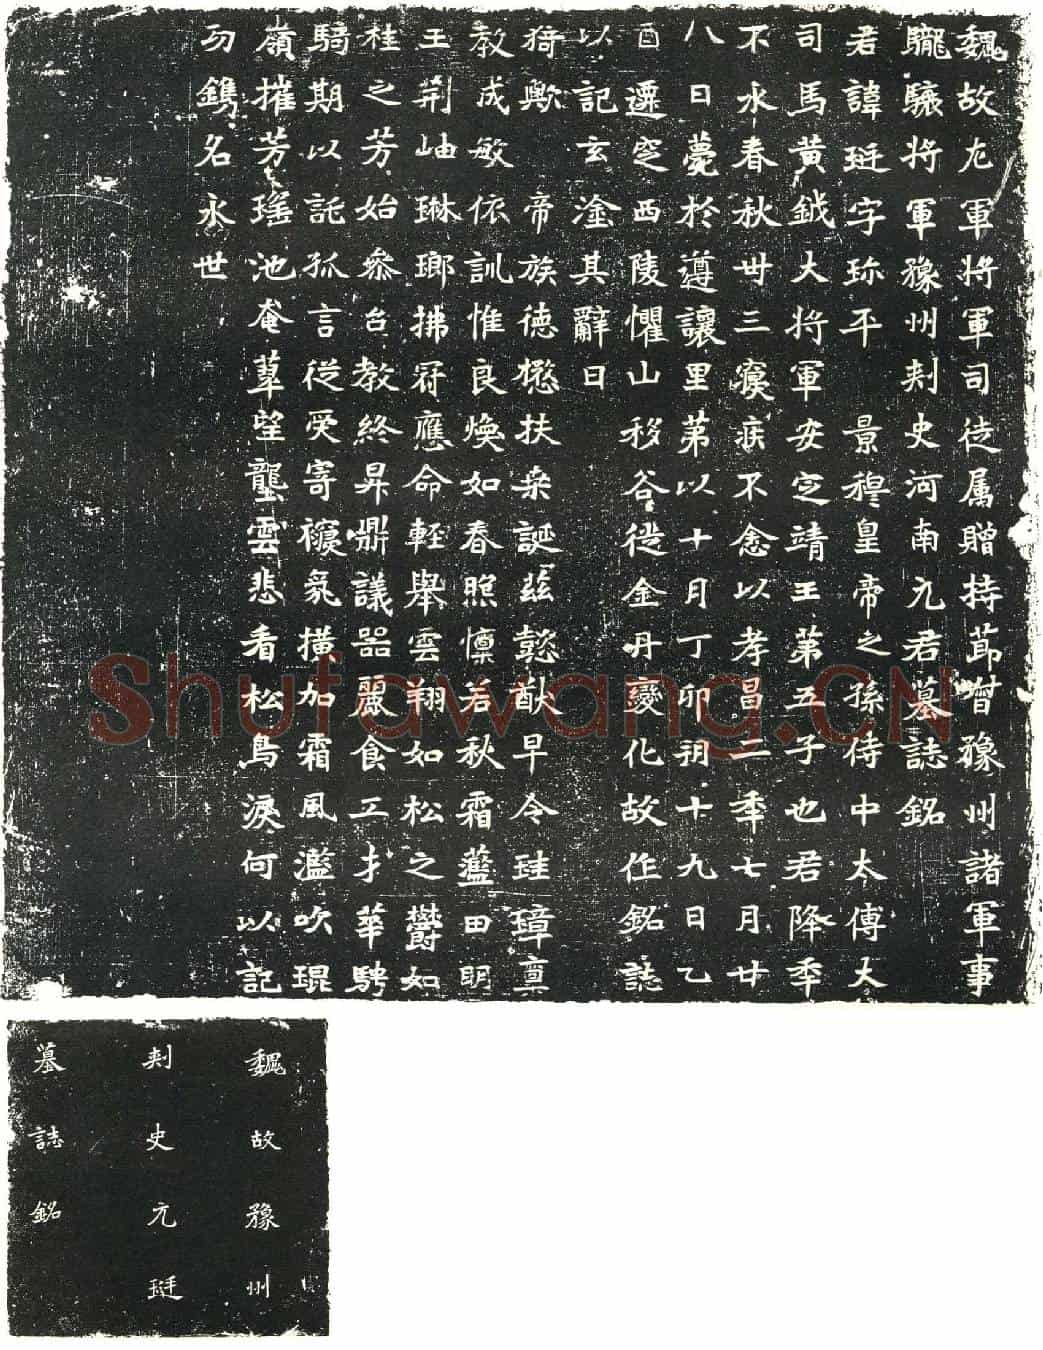 魏故左軍將軍司徒属贈持節督豫州諸軍事
龍驤將軍豫州刾史河南元君墓誌銘
君諱珽字珎平 景穆皇帝之孫侍中太傅大
司馬黄鉞大將軍安定靖王苐五子也君降秊
不永春秋卅三寢疾不念以孝昌二秊七月廿
八日薨於遵讓里苐以十月丁卯朔十九日乙
酉遷窆西陵懼山移谷徙金丹變化故作銘誌
以記玄淦其辭曰
猗歟 帝族德懋扶桒誕兹懿猷早令珪璋禀
教成敏依訓惟良煥如春煦懔若秋霜藍田明
玉荆岫琳瑯拂冠應命輕舉雲翔如松之鬱如
桂之芳始叅台教終昇鼎議噐罷食工才華騁
騎期以託孤言從受寄禭氛撗加霜風濫吹琨
嶺摧芳瑤池奄萃望壟雲悲看松鳥淚何以記
功鐫名永世
魏故豫州
刾史元珽
墓誌銘
Shufawang.CN